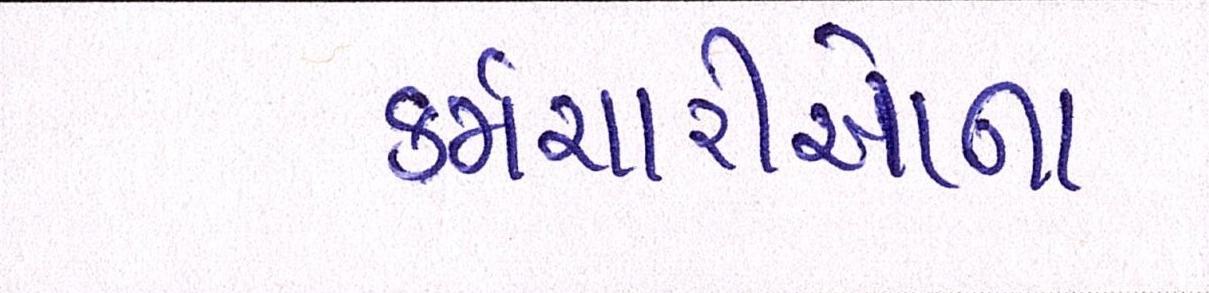 કર્મચારીઓના